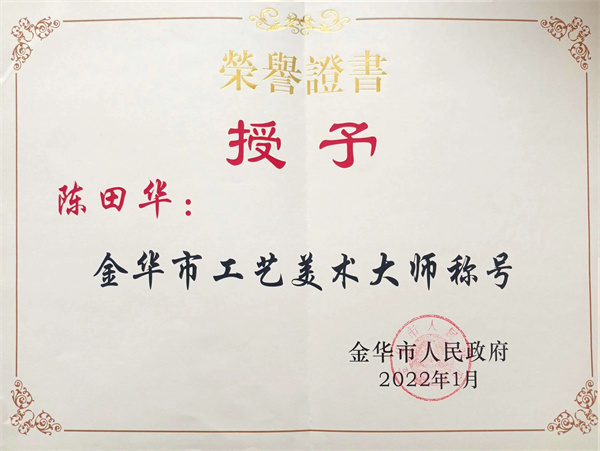 榮譽證書
授予
陈田华：
金华市工艺美术大师称号
金华市人民政府
2022年1月